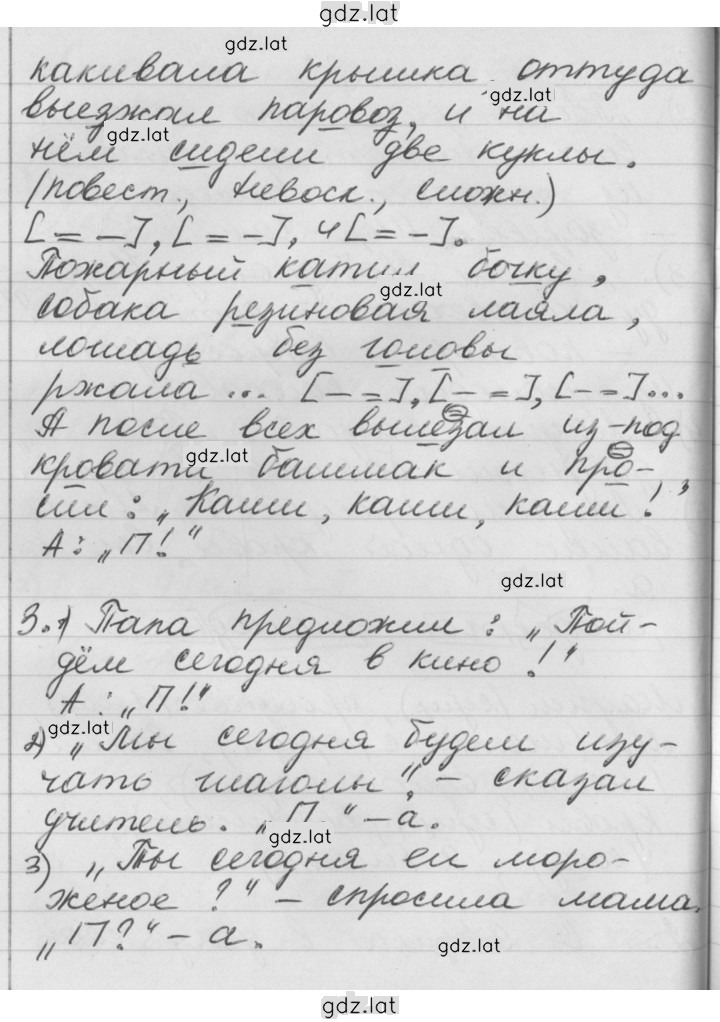 gdz.lat
gdz.lat
какивала крышка оттуда
gdz.lat
выезжал паровоз, и на
gdz.lat
нём сидели две куклы.
(повест., невоскл., сложн.)
[= –], [= –], и [= –].
Пожарный катил бочку,
gdz.lat
собака резиновая лаяла,
лошадь без головы
ржала ... [– =], [– =], [– =]...
А после всех вылезал из-под
gdz.lat
кровати башмак и про-
сил: „Каши, каши, каши!"
А: „П!"
gdz.lat
3. 1) Папа предложил: „Пой-
дём сегодня в кино!"
А: „П!"
gdz.lat
2) „Мы сегодня будем изу-
чать глаголы", – сказал
учитель. „П," – а.
gdz.lat
3) „Ты сегодня ел моро-
женое?" – спросила мама.
„П?" – а.
gdz.lat
gdz.lat